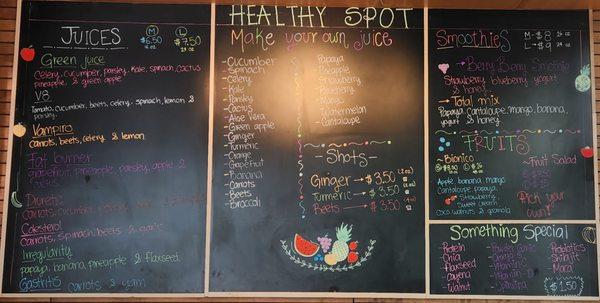 JUICES
M $6.50
L $7.50
Green juice
Celery, cucumber, parsley, kale, spinach, cactus
pineapple, & green apple
V8
Tomato, cucumber, beets, celery, spinach, lemon &
parsley
Vampiro
Carrots, beets, celery & lemon
Fat burner
grapefruit, pineapple, parsley, apple &
Diuretic
Colesterol
Carrots, spinach, beets & garlic
Irregularity
papaya, banana, pineapple & Flaxseed
Gastritis Carrots & yam
HEALTHY SPOT
Make your own juice
-Cucumber
-Spinach
-Celery
-Kale
-Parsley
-Cactus
-Aloe Vera
-Green apple
-Ginger
-Turmeric
-Orange
-Grapefruit
-Banana
-Carrots
-Beets
-Broccoli
Papaya
Pineapple
Strawberry
Blueberry
Mango
Watermelon
-Cantaloupe
-Shots-
Ginger → $3.50
Turmeric → $3.50
Beets → $3.50
Smoothies
M-$8
L-$9
Berry Berry Smoothie
Strawberry, blueberry, yogurt
& honey
→ Total mix
Papaya, Cantaloupe, mango, banana,
yogurt & honey
FRUITS
-Bionico
Apple banana mango
Cantaloupe papaya
Strawberry
Sweet cream
Coco walnuts & granola
-Fruit Salad
Pick your
own!
Something Special
-Protein
-Chia
-Flaxseed
-Cayena
-Walnut
-Probiotics
-Shilajit
-Maca
$1.50